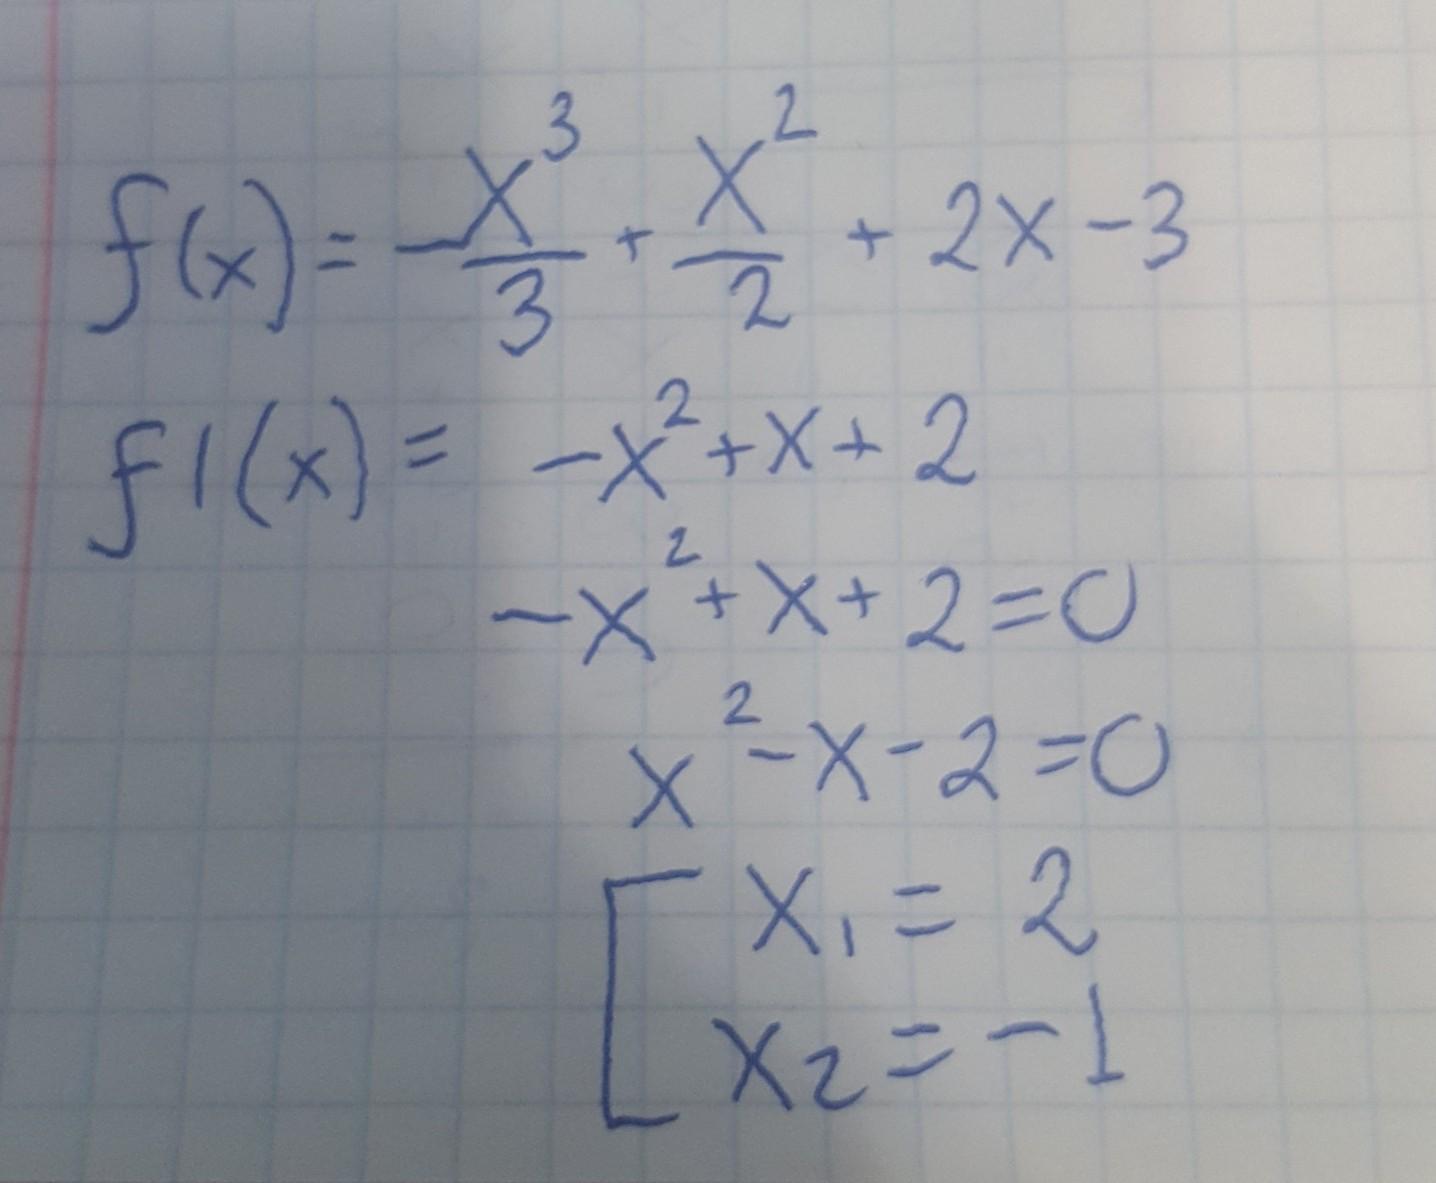 f(x) = -x³/3 + x²/2 + 2x - 3
f'(x) = -x² + x + 2
-x² + x + 2 = 0
x² - x - 2 = 0
[ x₁ = 2
x₂ = -1